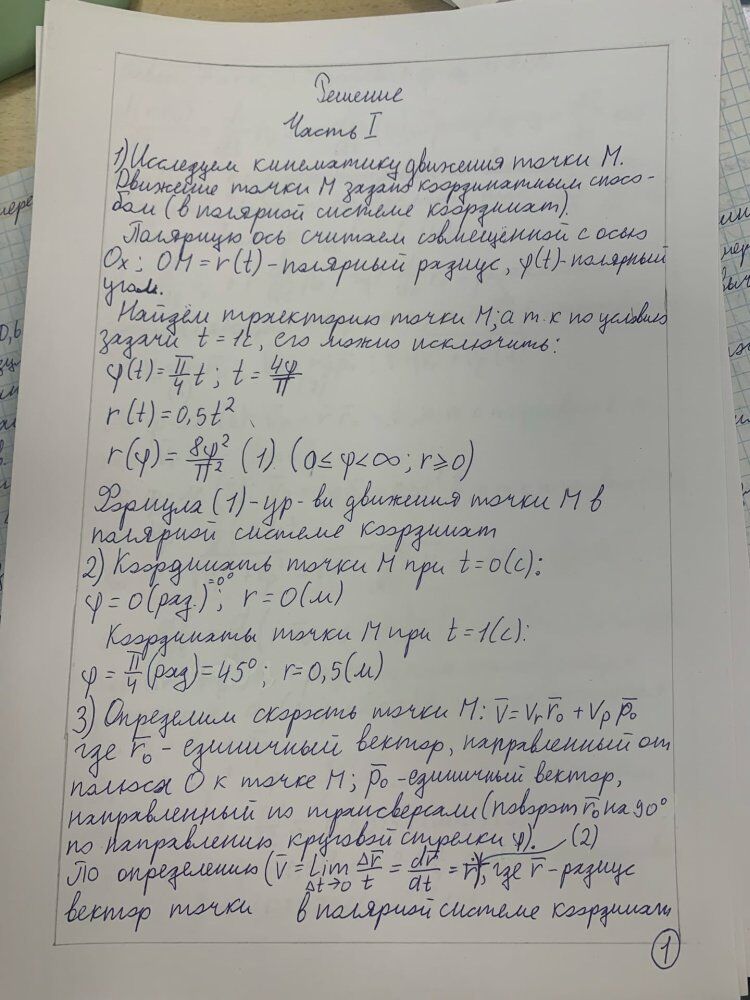 Решение
Часть I
1) Исследуем кинематику движения точки М.
Движение точки М задано координатным спосо-
бом (в полярной системе координат).
Полярную ось считаем совмещённой с осью
Ox; OM = r(t) - полярный радиус, φ(t) - полярный
угол.
Найдём траекторию точки М; а т.к по условию
задачи t = 1c, его можно исключить:
φ(t) = π/4 t; t = 4φ/π
r(t) = 0,5t²
r(φ) = 8φ²/π² (1) (0 ≤ φ < ∞; r ≥ 0)
Формула (1) - ур-ви движения точки М в
полярной системе координат
2) Координаты точки М при t = 0(c):
φ = 0(рад.) = 0°; r = 0(м)
Координаты точки М при t = 1(c):
φ = π/4 (рад) = 45°; r = 0,5(м)
3) Определим скорость точки М: v̅ = vᵣ r̅₀ + vₚ p̅₀
где r̅₀ - единичный вектор, направленный от
полюса О к точке М; p̅₀ - единичный вектор,
направленный по трансверсали (поворот r̅₀ на 90°
по направлению круговой стрелки φ). (2)
По определению (v̅ = lim Δt→0 Δr̅/t = dr̅/dt = ṙ), где r̅ - радиус
вектор точки в полярной системе координат
1